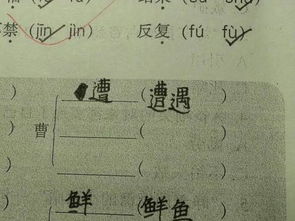 禁（jīn jìn） 反复（fú fù）
） 遭（遭遇
） 曹（
） （
） 鲜（鲜鱼